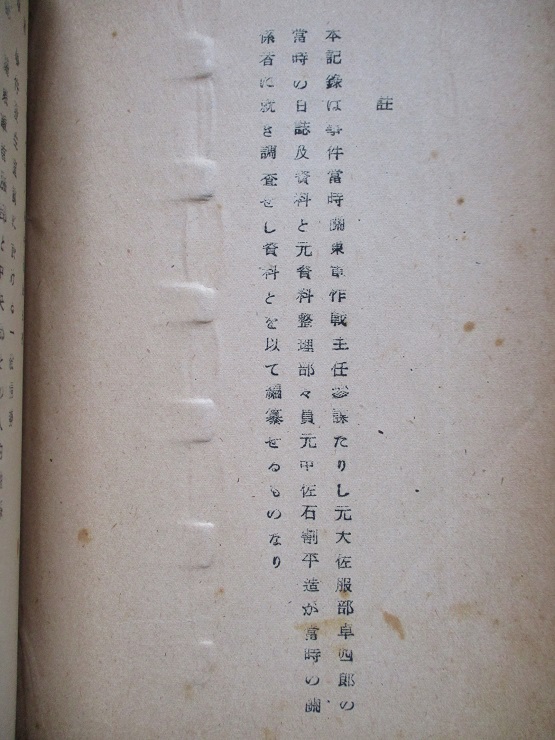 註
本記錄は事件當時關東軍作戰主任參謀たりし元大佐服部卓四郎の
當時の日誌及資料と元資料整理部々員元中佐石割平造が當時の關
係者に就き調査せし資料とを以て編纂せるものなり